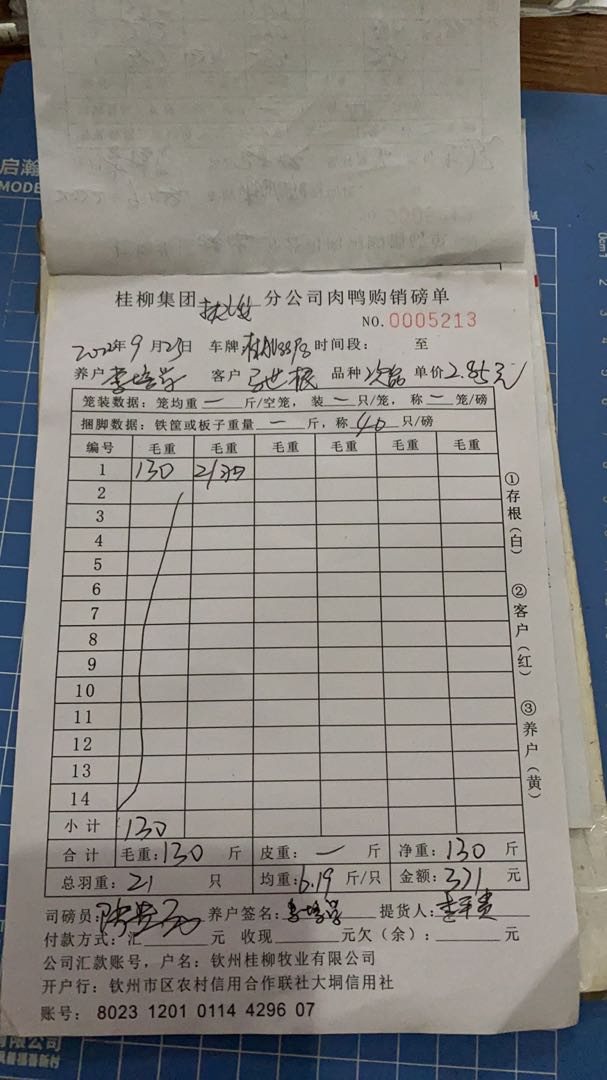 启瀚
MODE
桂柳集团 分公司肉鸭购销磅单
NO.0005213
2022年9月25日 车牌 时间段: 至
养户 客户 品种 次品 单价 2.85元
笼装数据:笼均重一斤/空笼,装一只/笼,称一笼/磅
捆脚数据:铁筐或板子重量一斤,称40只/磅
编号 毛重 毛重 毛重 毛重 毛重 毛重
1 130 21只
2
3
4
5
6
7
8
9
10
11
12
13
14
小计 130
合计 毛重:130斤 皮重:一斤 净重:130斤
总羽重:21 只 均重:6.19斤/只 金额:371元
司磅员: 养户签名: 提货人:
付款方式:汇 元 收现 元欠(余): 元
公司汇款账号,户名:钦州桂柳牧业有限公司
开户行:钦州市区农村信用合作联社大垌信用社
账号:8023 1201 0114 4296 07
①存根(白)
②客户(红)
③养户(黄)
有限公司